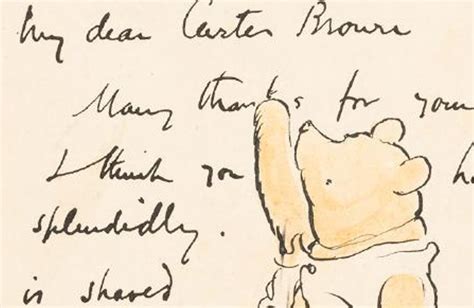 My dear Carter Brown
Many thanks for your
I think you
splendidly.
is shared